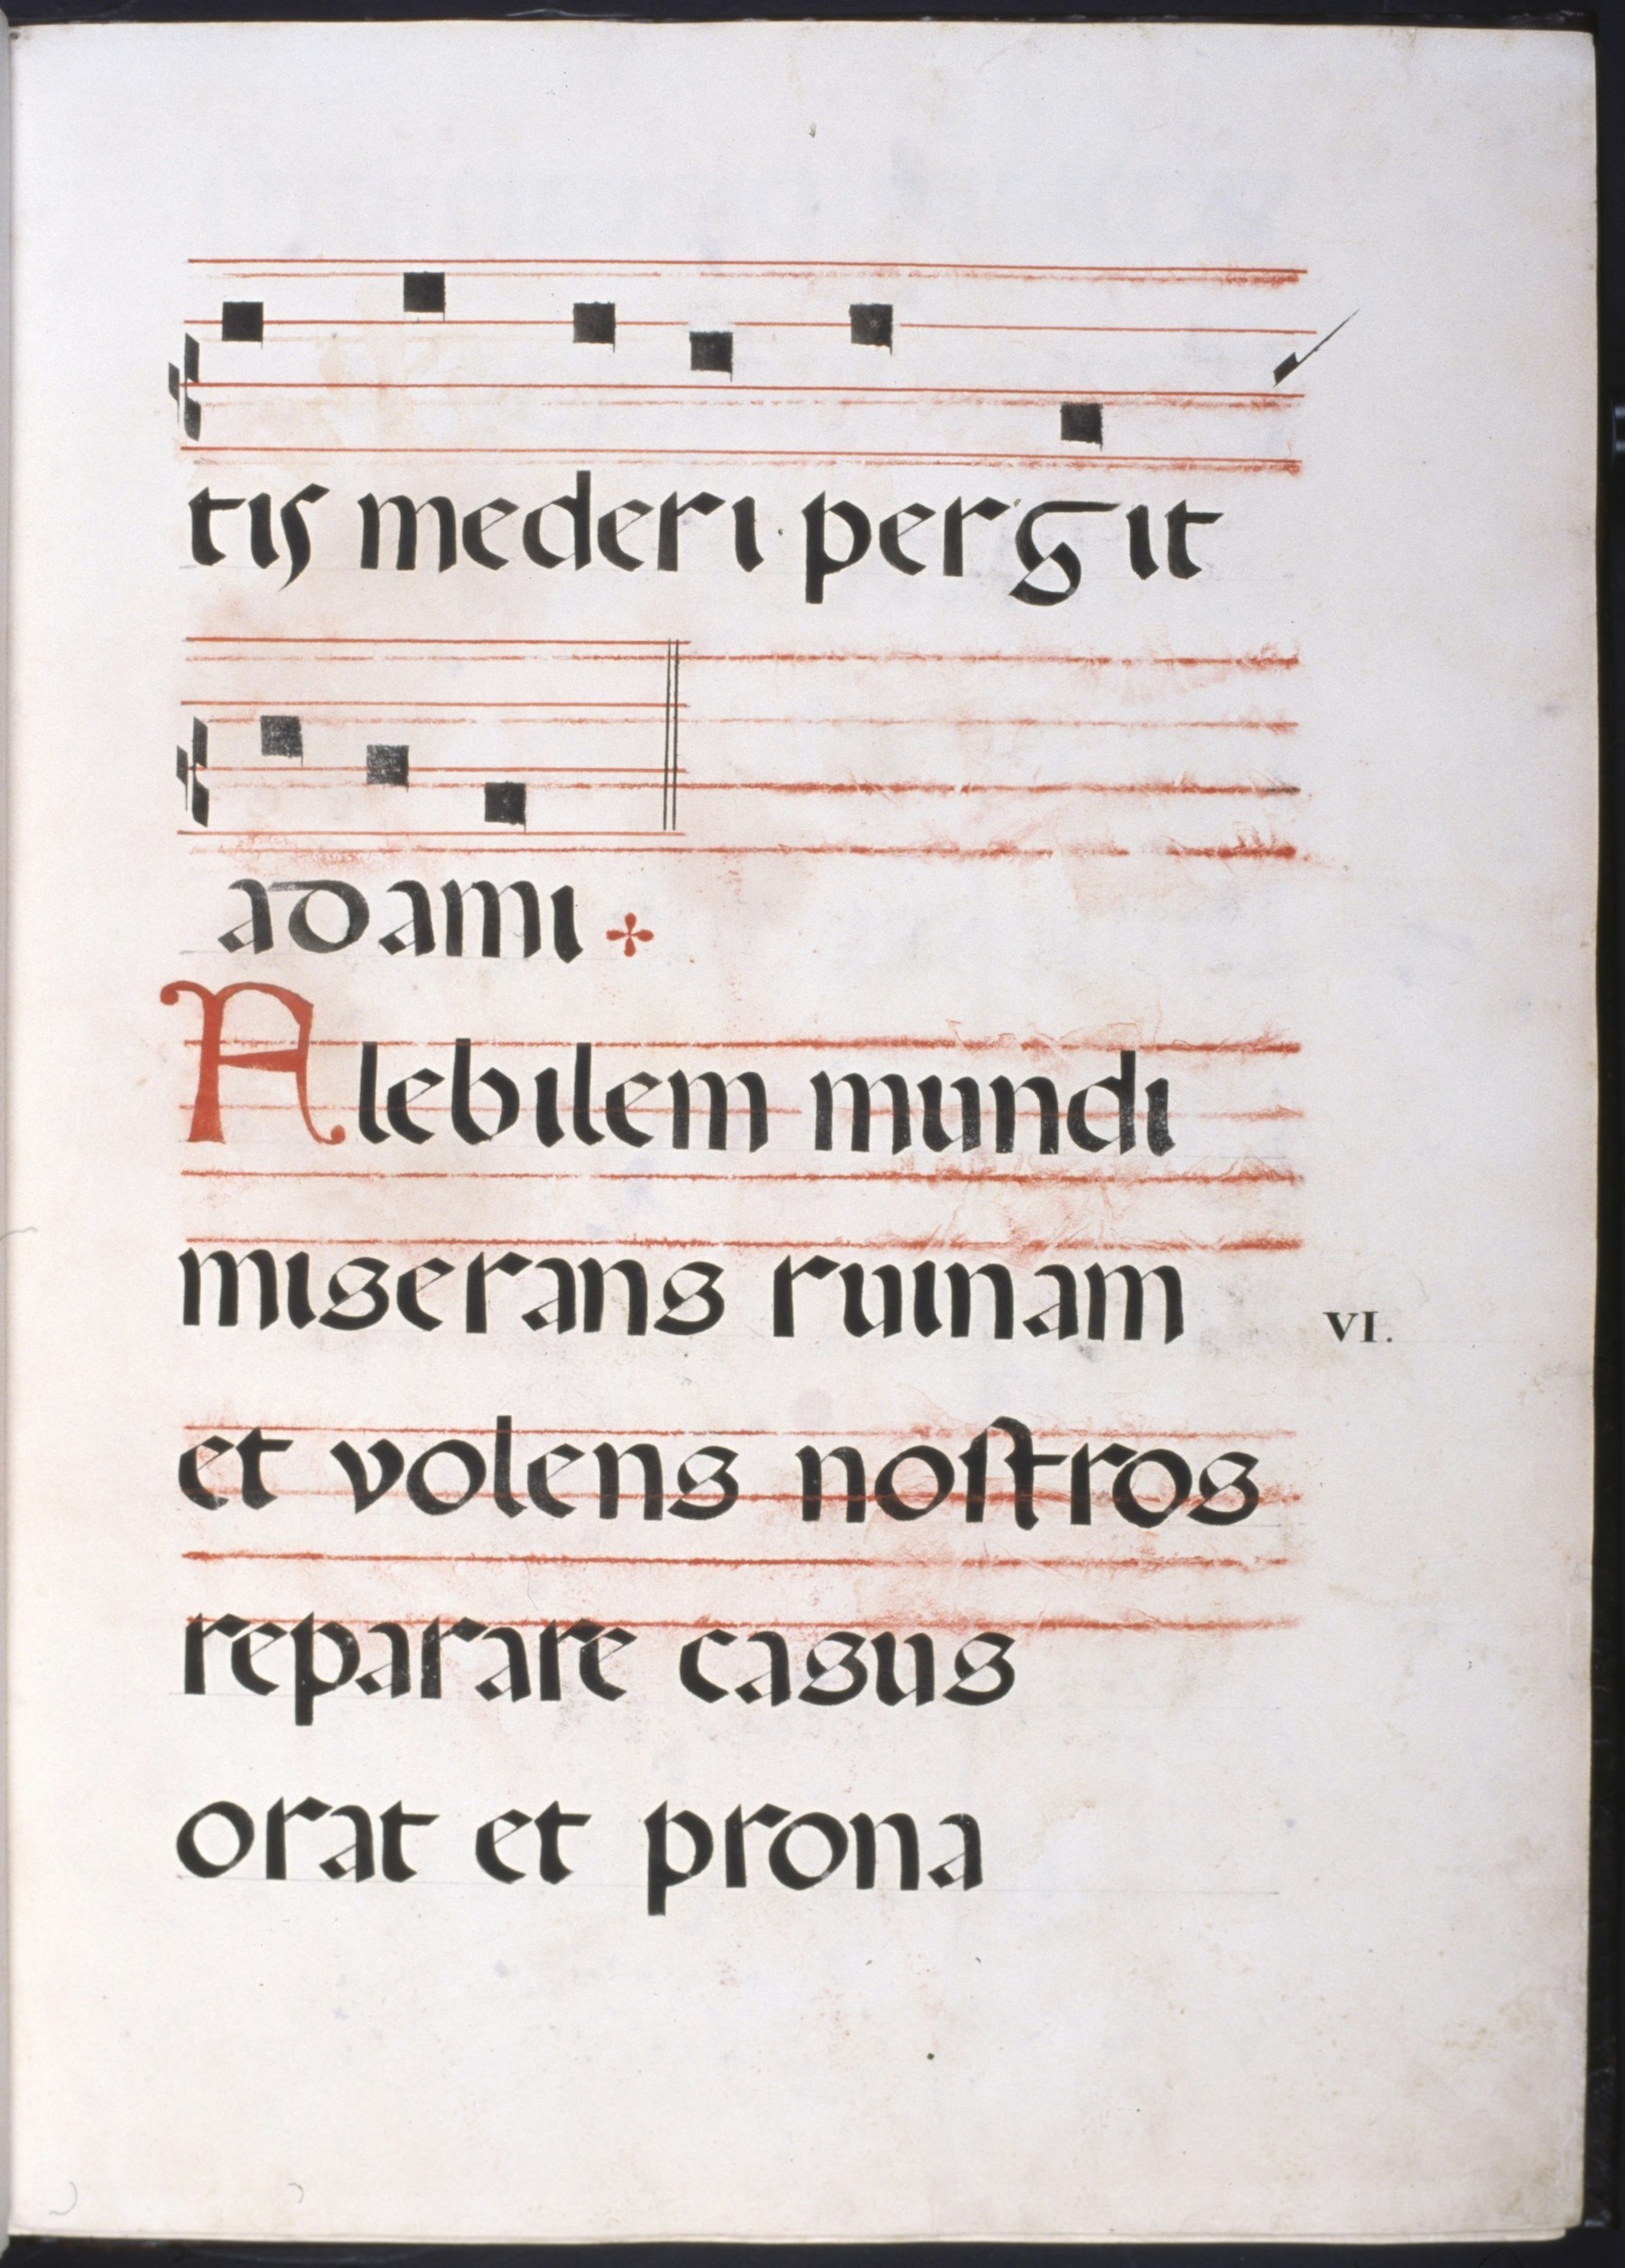 tis mederi pergit
adami
Alebilem mundi
miserans ruinam
VI.
et volens nostros
reparare casus
orat et prona